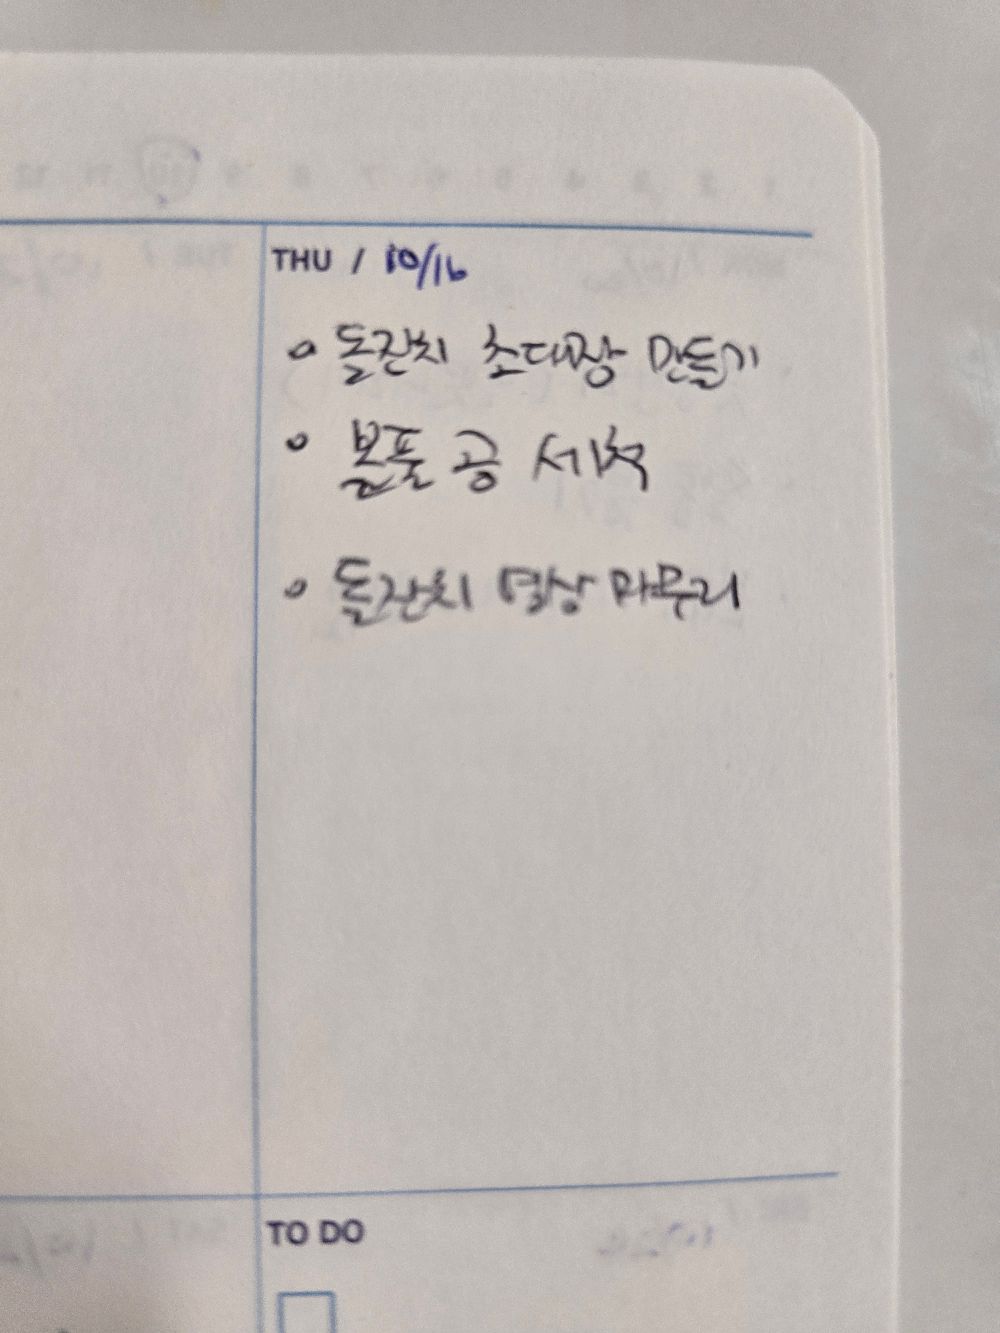 THU / 10/16
돌잔치 초대장 만들기
볼풀 공 세척
돌잔치 영상 마무리
TO DO